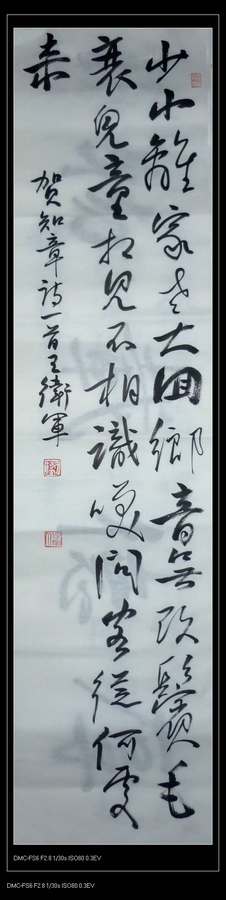 少小離家老大回鄉音無改鬢毛
衰兒童相見不相識咲問客從何處
來
賀知章詩一首王衛軍
DMC-FS6 F2.8 1/30s ISO80 0.3EV
DMC-FS6 F2.8 1/30s ISO80 0.3EV